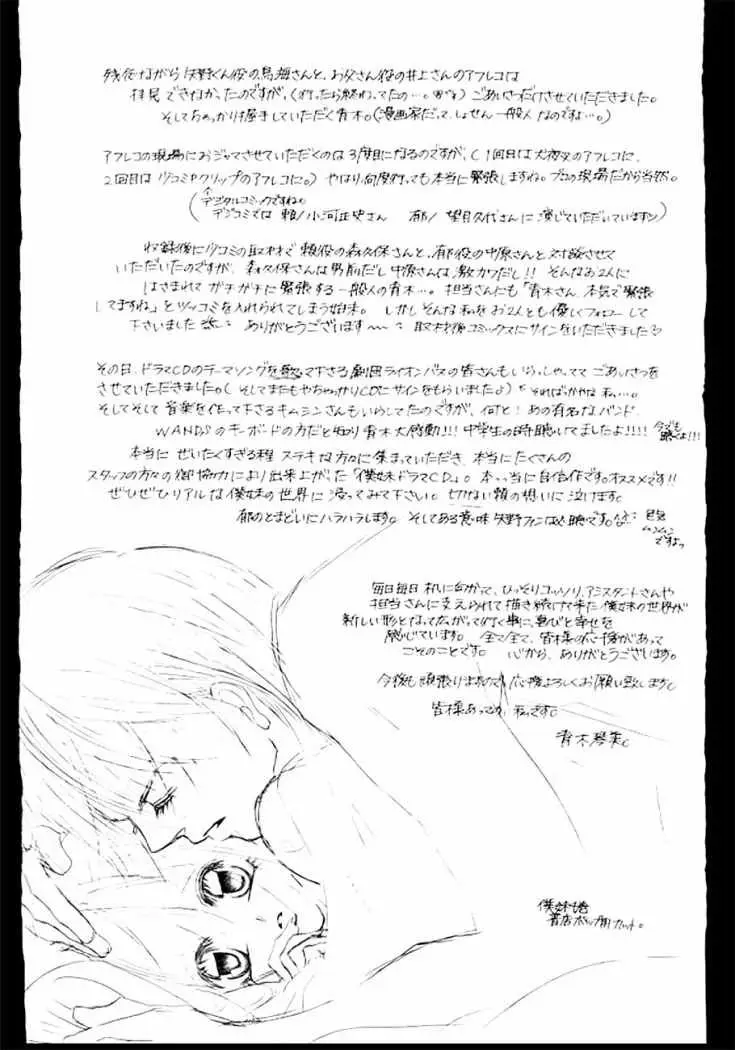 残念ながら矢野くん役の鳥海さんと、お父さん役の井上さんのアフレコは
拝見できなかったのですが、(行ったら終わってたの…。) ごあいさつだけさせていただきました。
そしてちゃっかり握手していただく青木。(漫画家だって、しょせん一般人なのですよ…。)
アフレコの現場におジャマさせていただくのは3度目になるのですが、(1回目は犬夜叉のアフレコに、
2回目はツコミPクリップのアフレコに。) やはり何度行っても本当に緊張しますね。プロの現場だから当然。
デジタルコミックですね。
(デジコミでは 頼/小河正史さん 郁/望月久代さんに演じていただいています)
収録後にツコミの取材で 頼役の森久保さんと、郁役の中原さんと対談させて
いただいたのですが、森久保さんは男前だし中原さんは激カワだし!! そんなお2人に
はさまれて ガチガチに緊張する一般人の青木…。担当さんにも「青木さん、本気で緊張
してますね」とツッコミを入れられてしまう始末。しかしそんな私をお2人とも優しくフォローして
下さいました ありがとうございます〜〜 取材後コミックスにサインをいただきました
その日、ドラマCDのテーマソングを歌って下さる劇団ライオンパスの皆さんもいらっしゃってて ごあいさつを
させていただきました。(そしてまたもやちゃっかりCDにサインをもらいましたよ) そればかやな 私…。
そしてそして 音楽を作って下さるキムシンさんもいらしてたのですが、何と! あの有名なバンド、
WANDSのキーボードの方だと知り 青木大感動!!! 中学生の時聴いてましたよ!!!! 今でも聴くよ!!!
本当に ぜいたくすぎる程 ステキな方々に集まっていただき、本当にたくさんの
スタッフの方々の御協力により出来上がった「僕妹ドラマCD」。本っ当に自信作です。オススメです!!
ぜひぜひリアルな僕妹の世界に浸ってみて下さい。切ない頼の想いに泣けます。
郁のとまどいにハラハラします。そしてある意味 矢野ファンは必聴です。
ですよっ
毎日毎日 机に向かって、ひっそりコッソリ、アシスタントさんや
担当さんに支えられて描き続けて来た僕妹の世界が
新しい形となって広がって行く事に喜びと幸せを
感じています。全て全て、皆様の応援があって
こそのことです。心から、ありがとうございます。
今後も頑張りますので、応援よろしくお願い致します。
皆様あっての、私です。
青木琴美。
僕妹1巻
書店ポップ用カット。